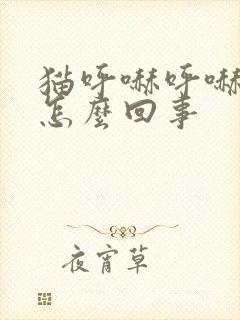 猫呼嚇呼嚇
怎麼回事
夜宵草